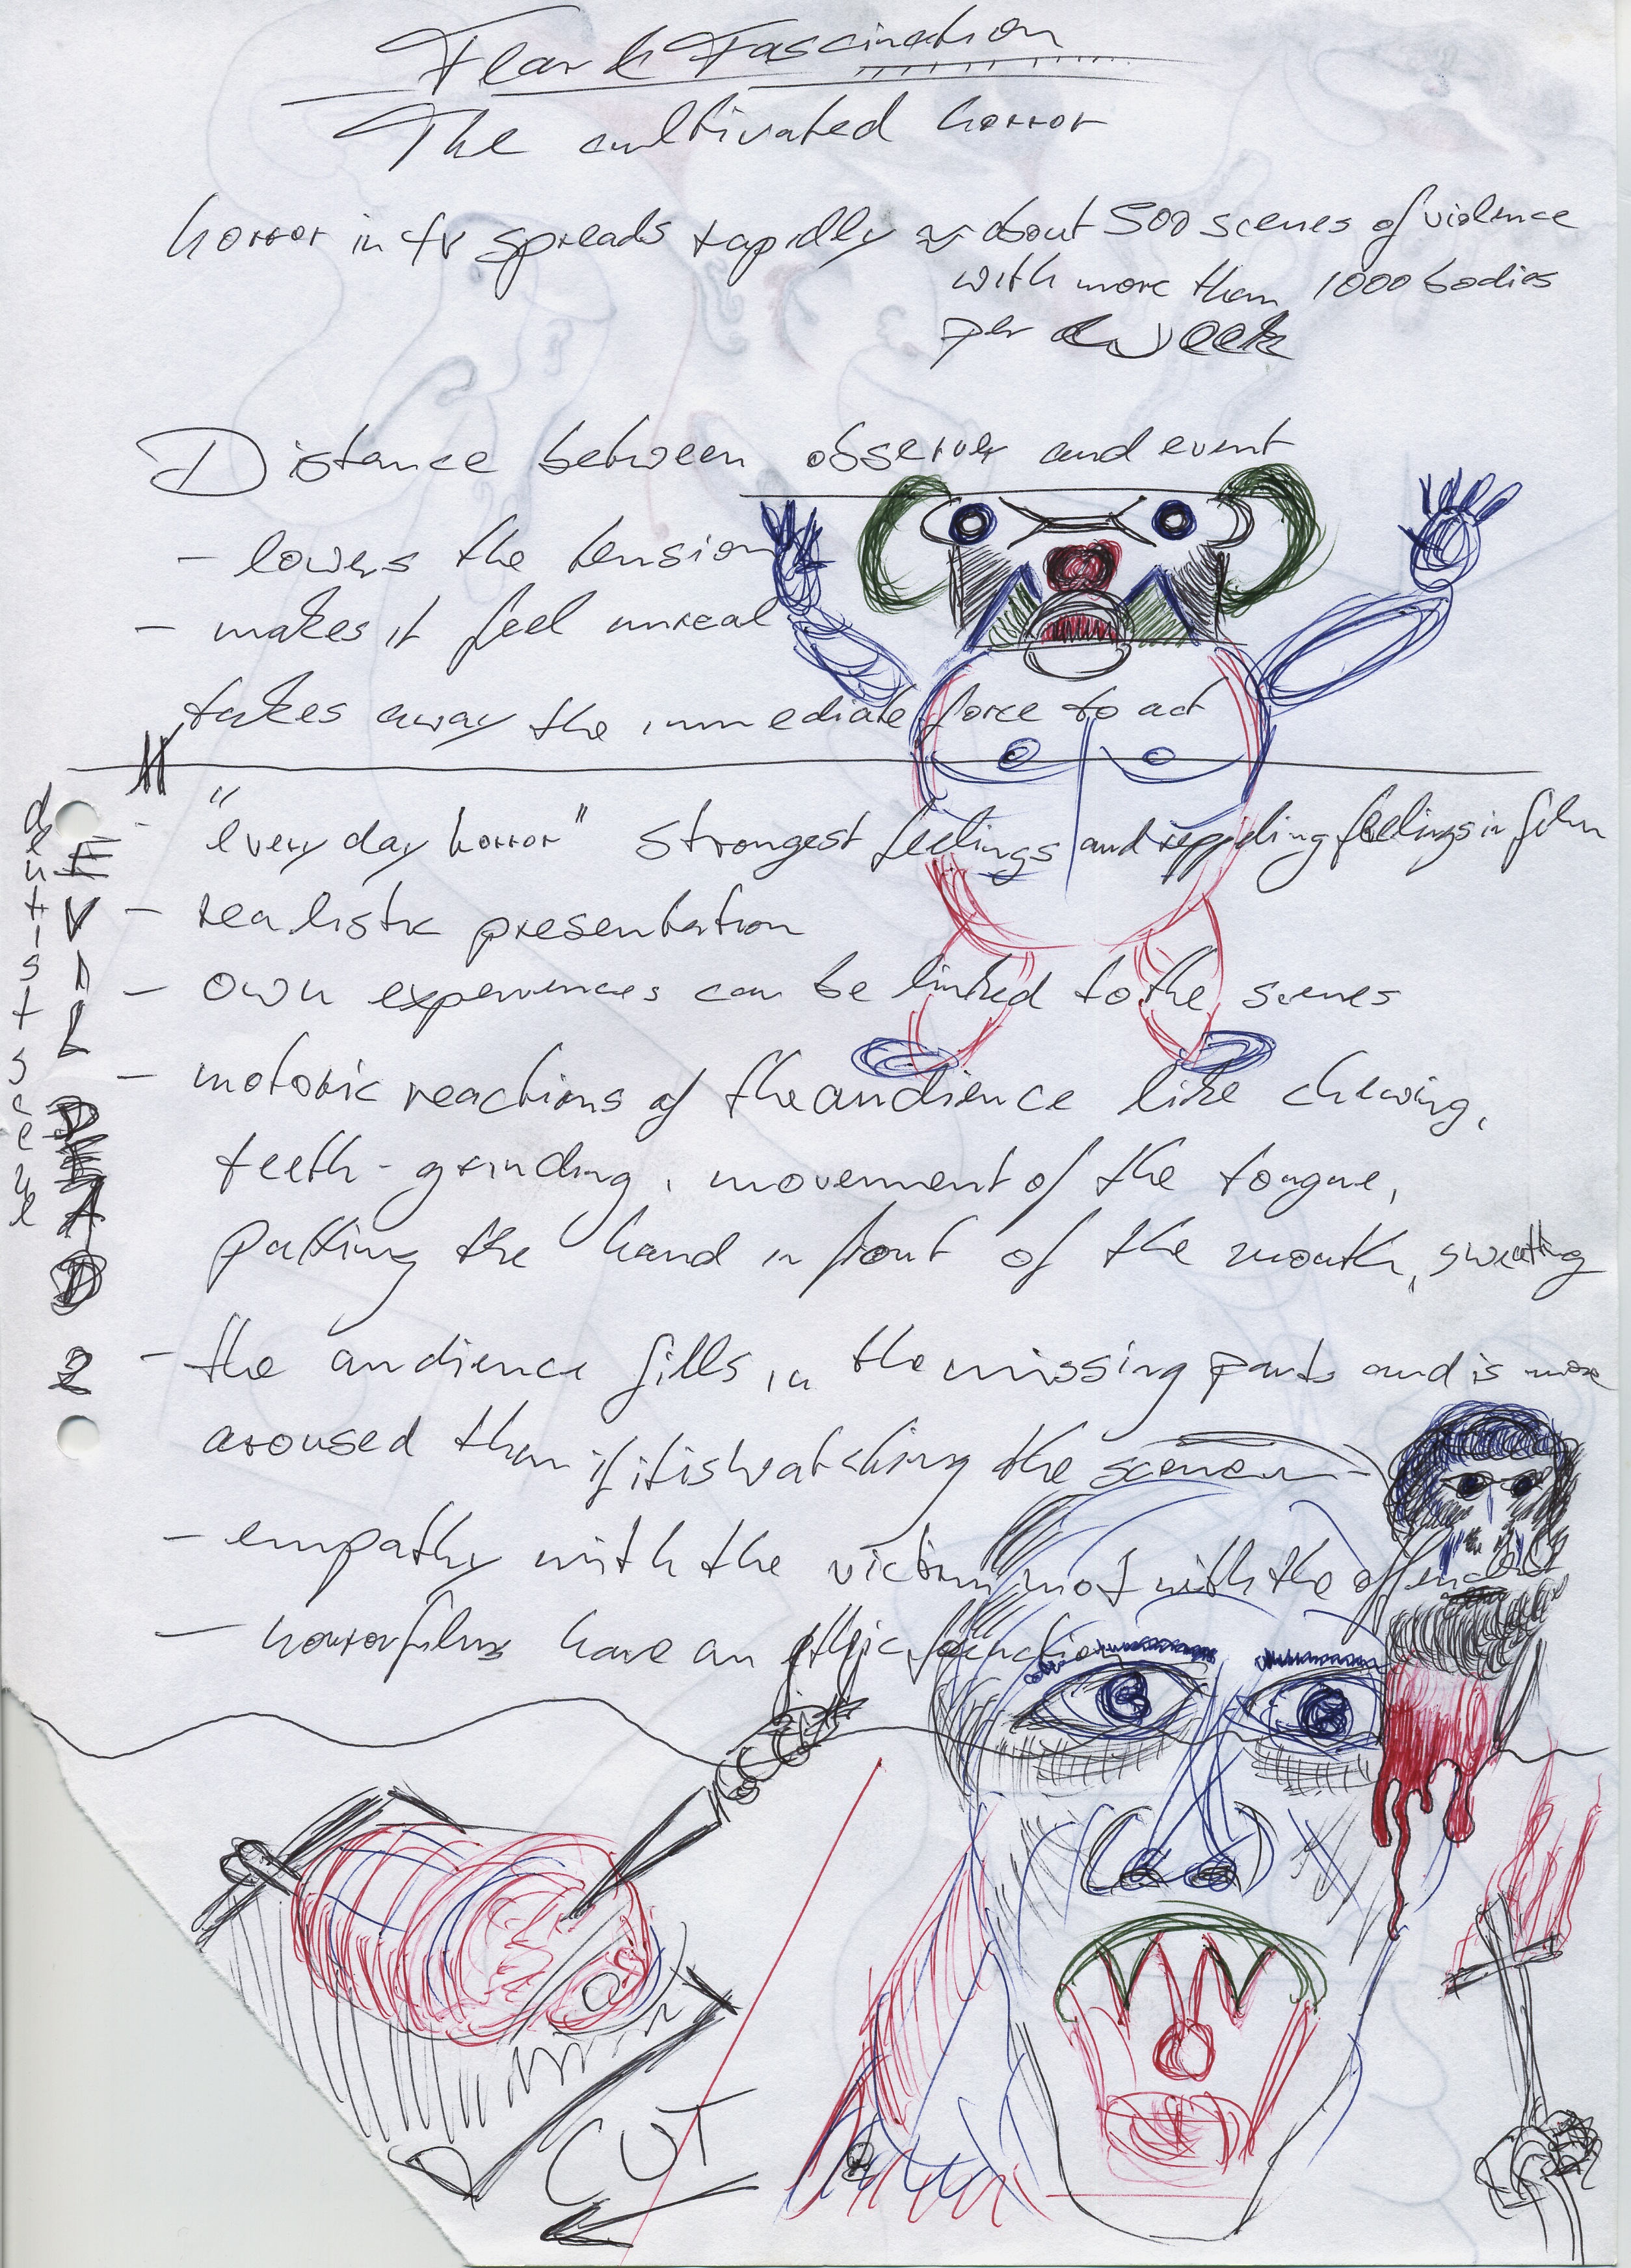 Fear & Fascination
The cultivated horror
horror in tv spreads rapidly ~ about 500 scenes of violence
with more than 1000 bodies
per week
Distance between observer and event
- lowers the tension
- makes it feel unreal
takes away the immediate force to act
- "every day horror" strongest feelings and repelling feelings in film
- realistic presentation
- own experiences can be linked to the scenes
- motoric reactions of the audience like chewing,
teeth-grinding, movement of the tongue,
putting the hand in front of the mouth, sweating
- the audience fills in the missing parts and is more
aroused than if it is watching the scene
- empathy with the victim, not with the offender
- horrorfilms have an ethic function
dentist scene
EVIL DEAD 2
CUT